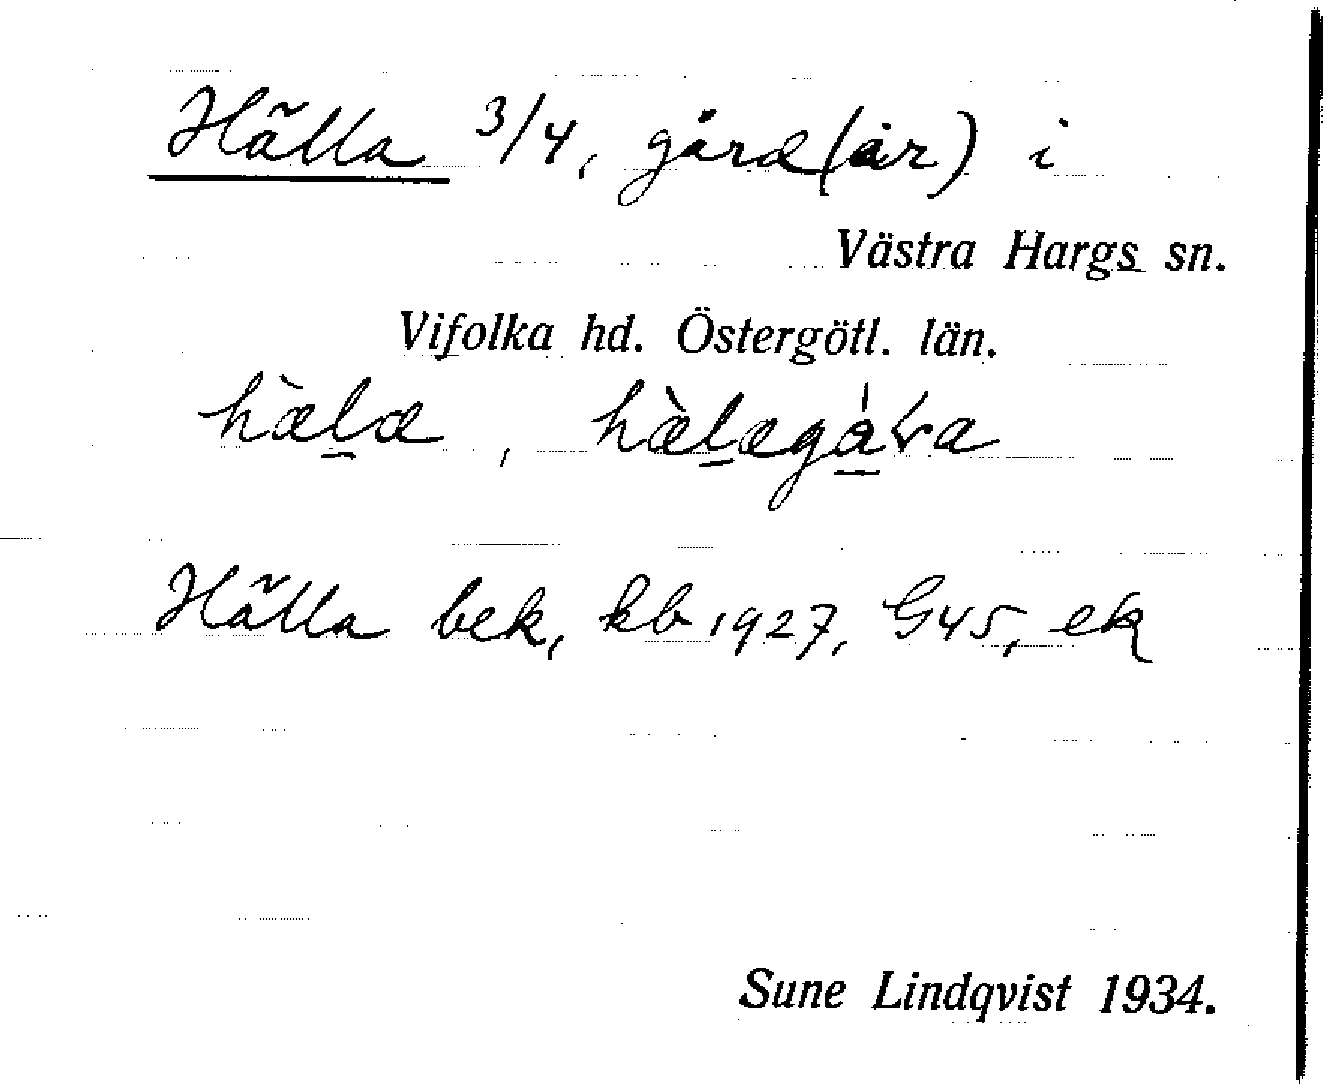 Hälla 3/4, gård(ar) i
Västra Hargs sn.
Vifolka hd. Östergötl. län.
hæ̀læ, hæ̀lægáṙa
Hälla bek, kb 1927, G45, ek
Sune Lindqvist 1934.